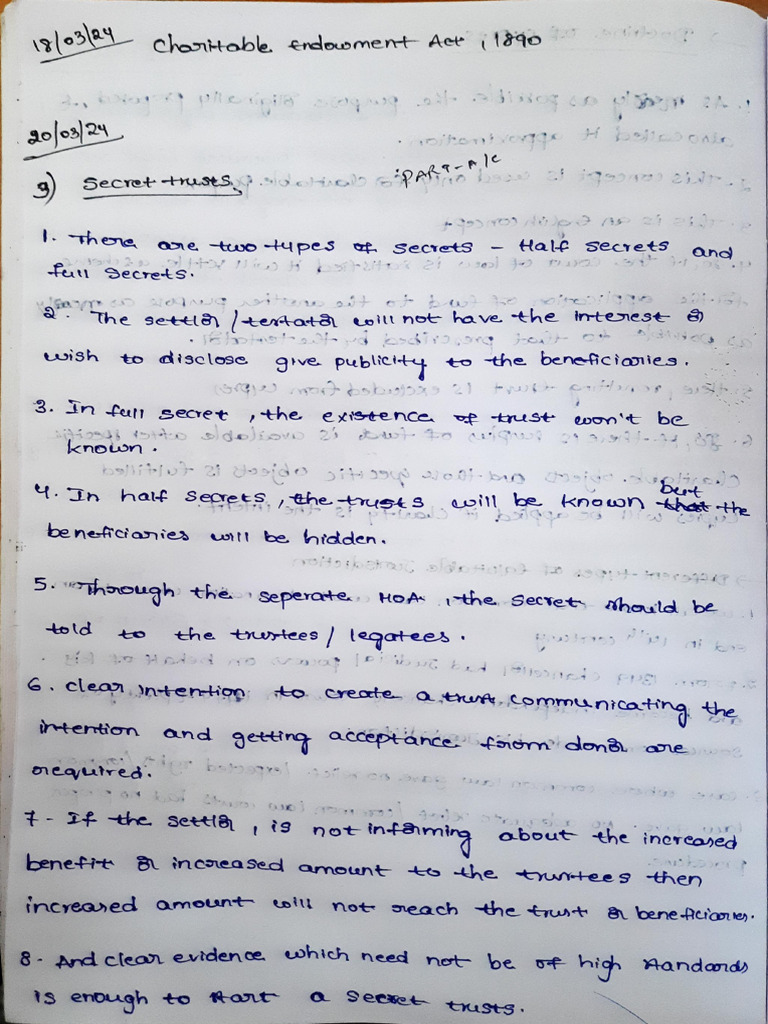 18/03/24 Charitable Endowment Act, 1890
20/03/24
9) Secret trusts. :PART-A/C
1. There are two types of secrets - Half secrets and
full secrets.
2. The settlor / testator will not have the interest or
wish to disclose give publicity to the beneficiaries.
3. In full secret, the existence of trust won't be
known.
4. In half secrets, the trusts will be known but the
beneficiaries will be hidden.
5. Through the seperate MOA, the secret should be
told to the trustees / legatees.
6. clear intention to create a trust communicating the
intention and getting acceptance from donor are
required.
7 - If the settlor, is not informing about the increased
benefit or increased amount to the trustees then
increased amount will not reach the trust or beneficiaries.
8 - And clear evidence which need not be of high standards
is enough to start a secret trusts.